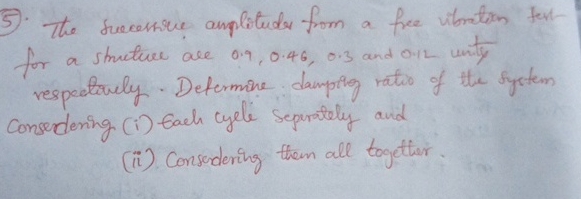 5. The Successive amplitudes from a free vibration test
for a structure are 0.9, 0.46, 0.3 and 0.12 unity
respectively. Determine damping ratio of the system
Conserdering (i) Each cycle Seperately and
(ii). Conserdering them all together.